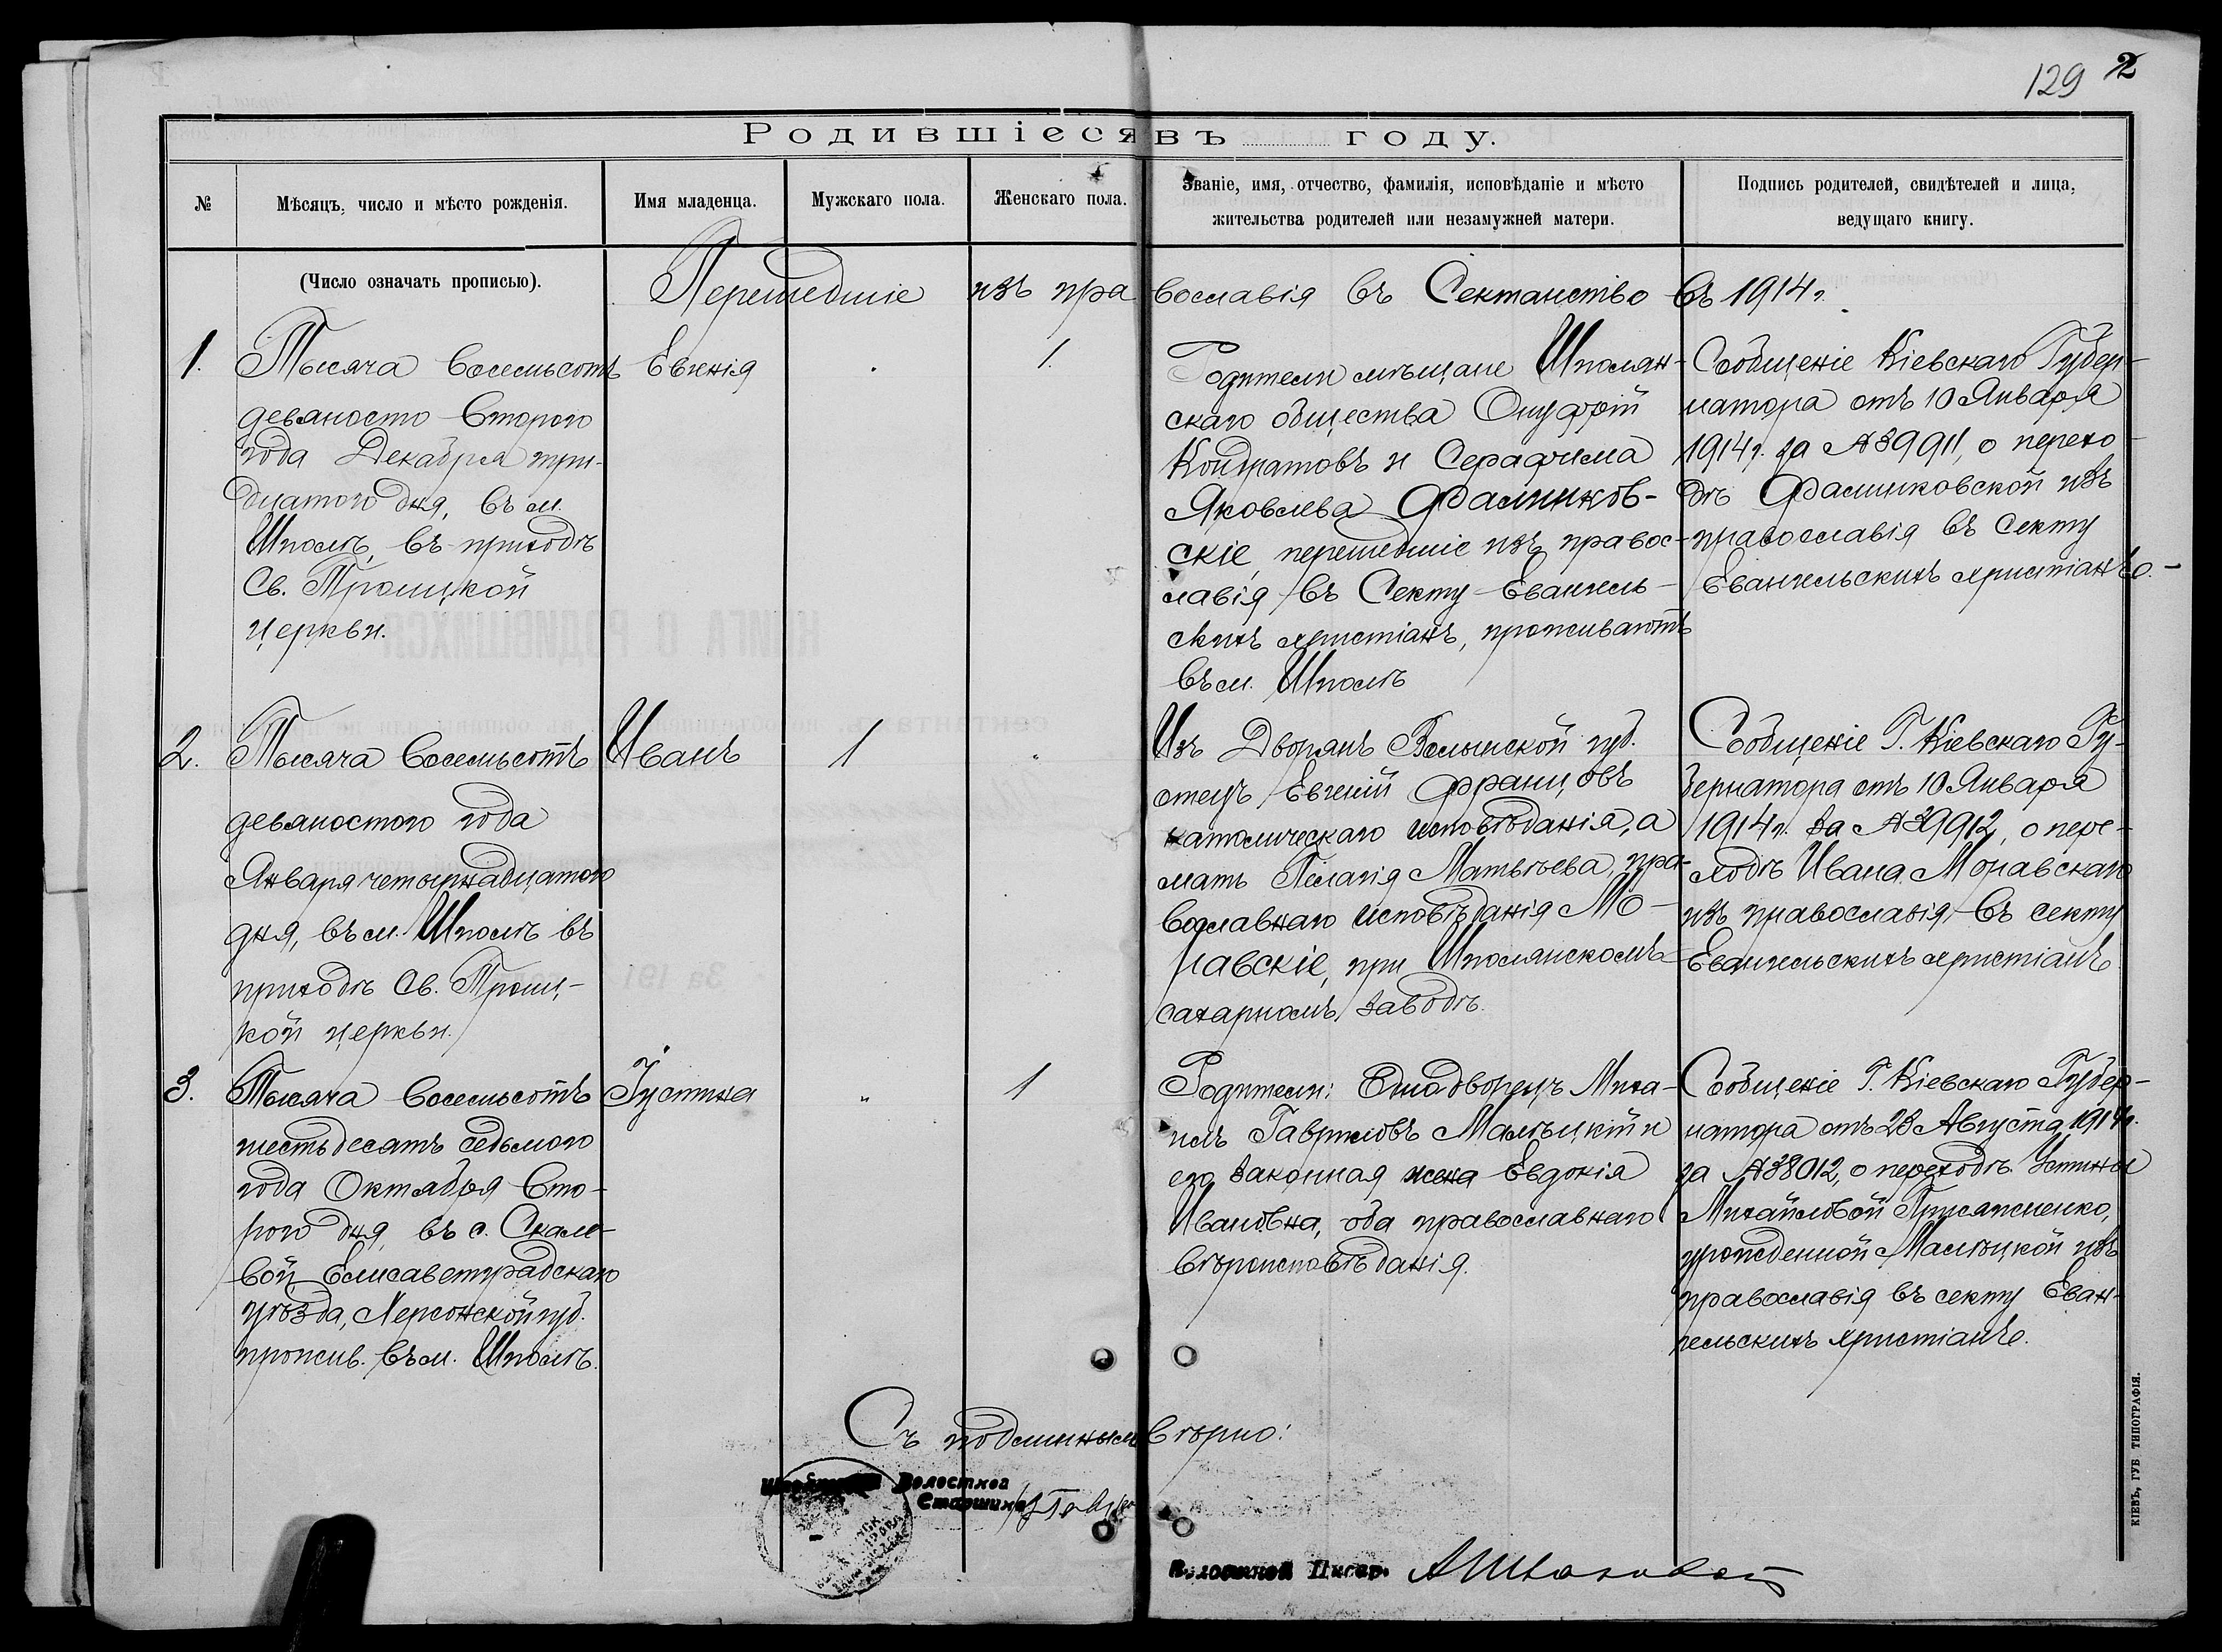 129 2
Родившіеся въ году.
№
Мѣсяцъ, число и мѣсто рожденія.
Имя младенца.
Мужскаго пола.
Женскаго пола.
Званіе, имя, отчество, фамилія, исповѣданіе и мѣсто
жительства родителей или незамужней матери.
Подпись родителей, свидѣтелей и лица,
ведущаго книгу.
(Число означать прописью).
Перешедшіе изъ православія въ Сектанство въ 1914 г.
1.
Тысяча восемьсотъ
девяносто второго
года Декабря три-
дцатого дня, въ м.
Шполѣ, въ приходѣ
Св. Троицкой
церкви.
Евгенія
1.
Родители мѣщане Шполян-
скаго общества Онуфрій
Кондратовъ и Серафима
Яковлева Фалинков-
скіе, перешедшіе изъ правос-
лавія въ Секту Евангель-
скихъ христіанъ, проживаютъ
въ м. Шполѣ
Сообщеніе Кіевскаго Губер-
натора отъ 10 Января
1914 г. за № 39911, о перехо-
дѣ Фалинковской изъ
православія въ секту
Евангельскихъ христіанъ.
2.
Тысяча восемьсотъ
девяностого года
Января четырнадцатого
дня, въ м. Шполѣ въ
приходѣ Св. Троиц-
кой церкви.
Иванъ
1
Изъ Дворянъ Волынской губ.
отецъ Евгеній Францовъ
католическаго исповѣданія, а
мать Пелагія Матвѣева, пра-
вославнаго исповѣданія Мо-
равскіе, при Шполянскомъ
сахарномъ заводѣ.
Сообщеніе Г. Кіевскаго Гу-
бернатора отъ 10 Января
1914 г. за № 39912, о пере-
ходѣ Ивана Моравскаго
изъ православія въ секту
Евангельскихъ христіанъ
3.
Тысяча восемьсотъ
шестьдесятъ седьмого
года Октября вто-
рого дня, въ с. Скале-
вой Елисаветградскаго
уѣзда, Херсонской губ.
прожив. въ м. Шполѣ.
Іустина
1
Родители: Однодворецъ Миха-
илъ Гавриловъ Малѣцкій и
его законная жена Евдокія
Ивановна, оба православнаго
вѣроисповѣданія.
Сообщеніе Г. Кіевскаго Губер-
натора отъ 28 Августа 1914 г.
за № 38012, о переходѣ Устины
Михайловой Присяжненко,
урожденной Малѣцкой изъ
православія въ секту Еван-
гельскихъ христіанъ.
Съ подлиннымъ вѣрно:
Волостной
Старшина
Волостной Писарь
КІЕВЪ, ГУБ ТИПОГРАФІЯ.